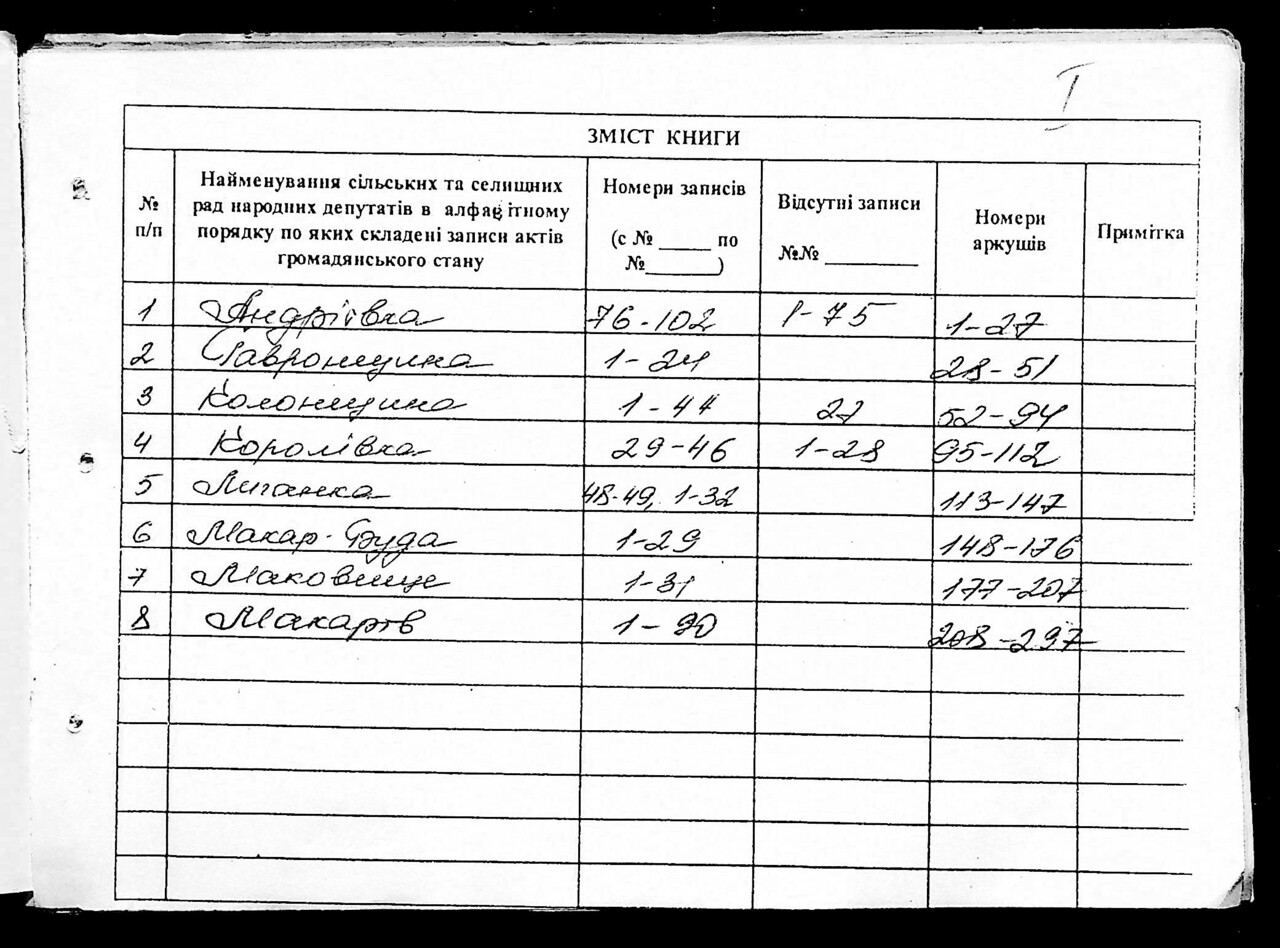 I
ЗМІСТ КНИГИ
№ п/п
Найменування сільських та селищних
рад народних депутатів в алфавітному
порядку по яких складені записи актів
громадянського стану
Номери записів
(с № _____ по
№_______)
Відсутні записи
№№ _________
Номери
аркушів
Примітка
1 Андріївка 76-102 1-75 1-27
2 Гавронщина 1-24 28-51
3 Колонщина 1-44 27 52-94
4 Королівка 29-46 1-28 95-112
5 Липанка 48-49, 1-32 113-147
6 Макар-Буда 1-29 148-176
7 Маковище 1-31 177-207
8 Макарів 1-90 208-297